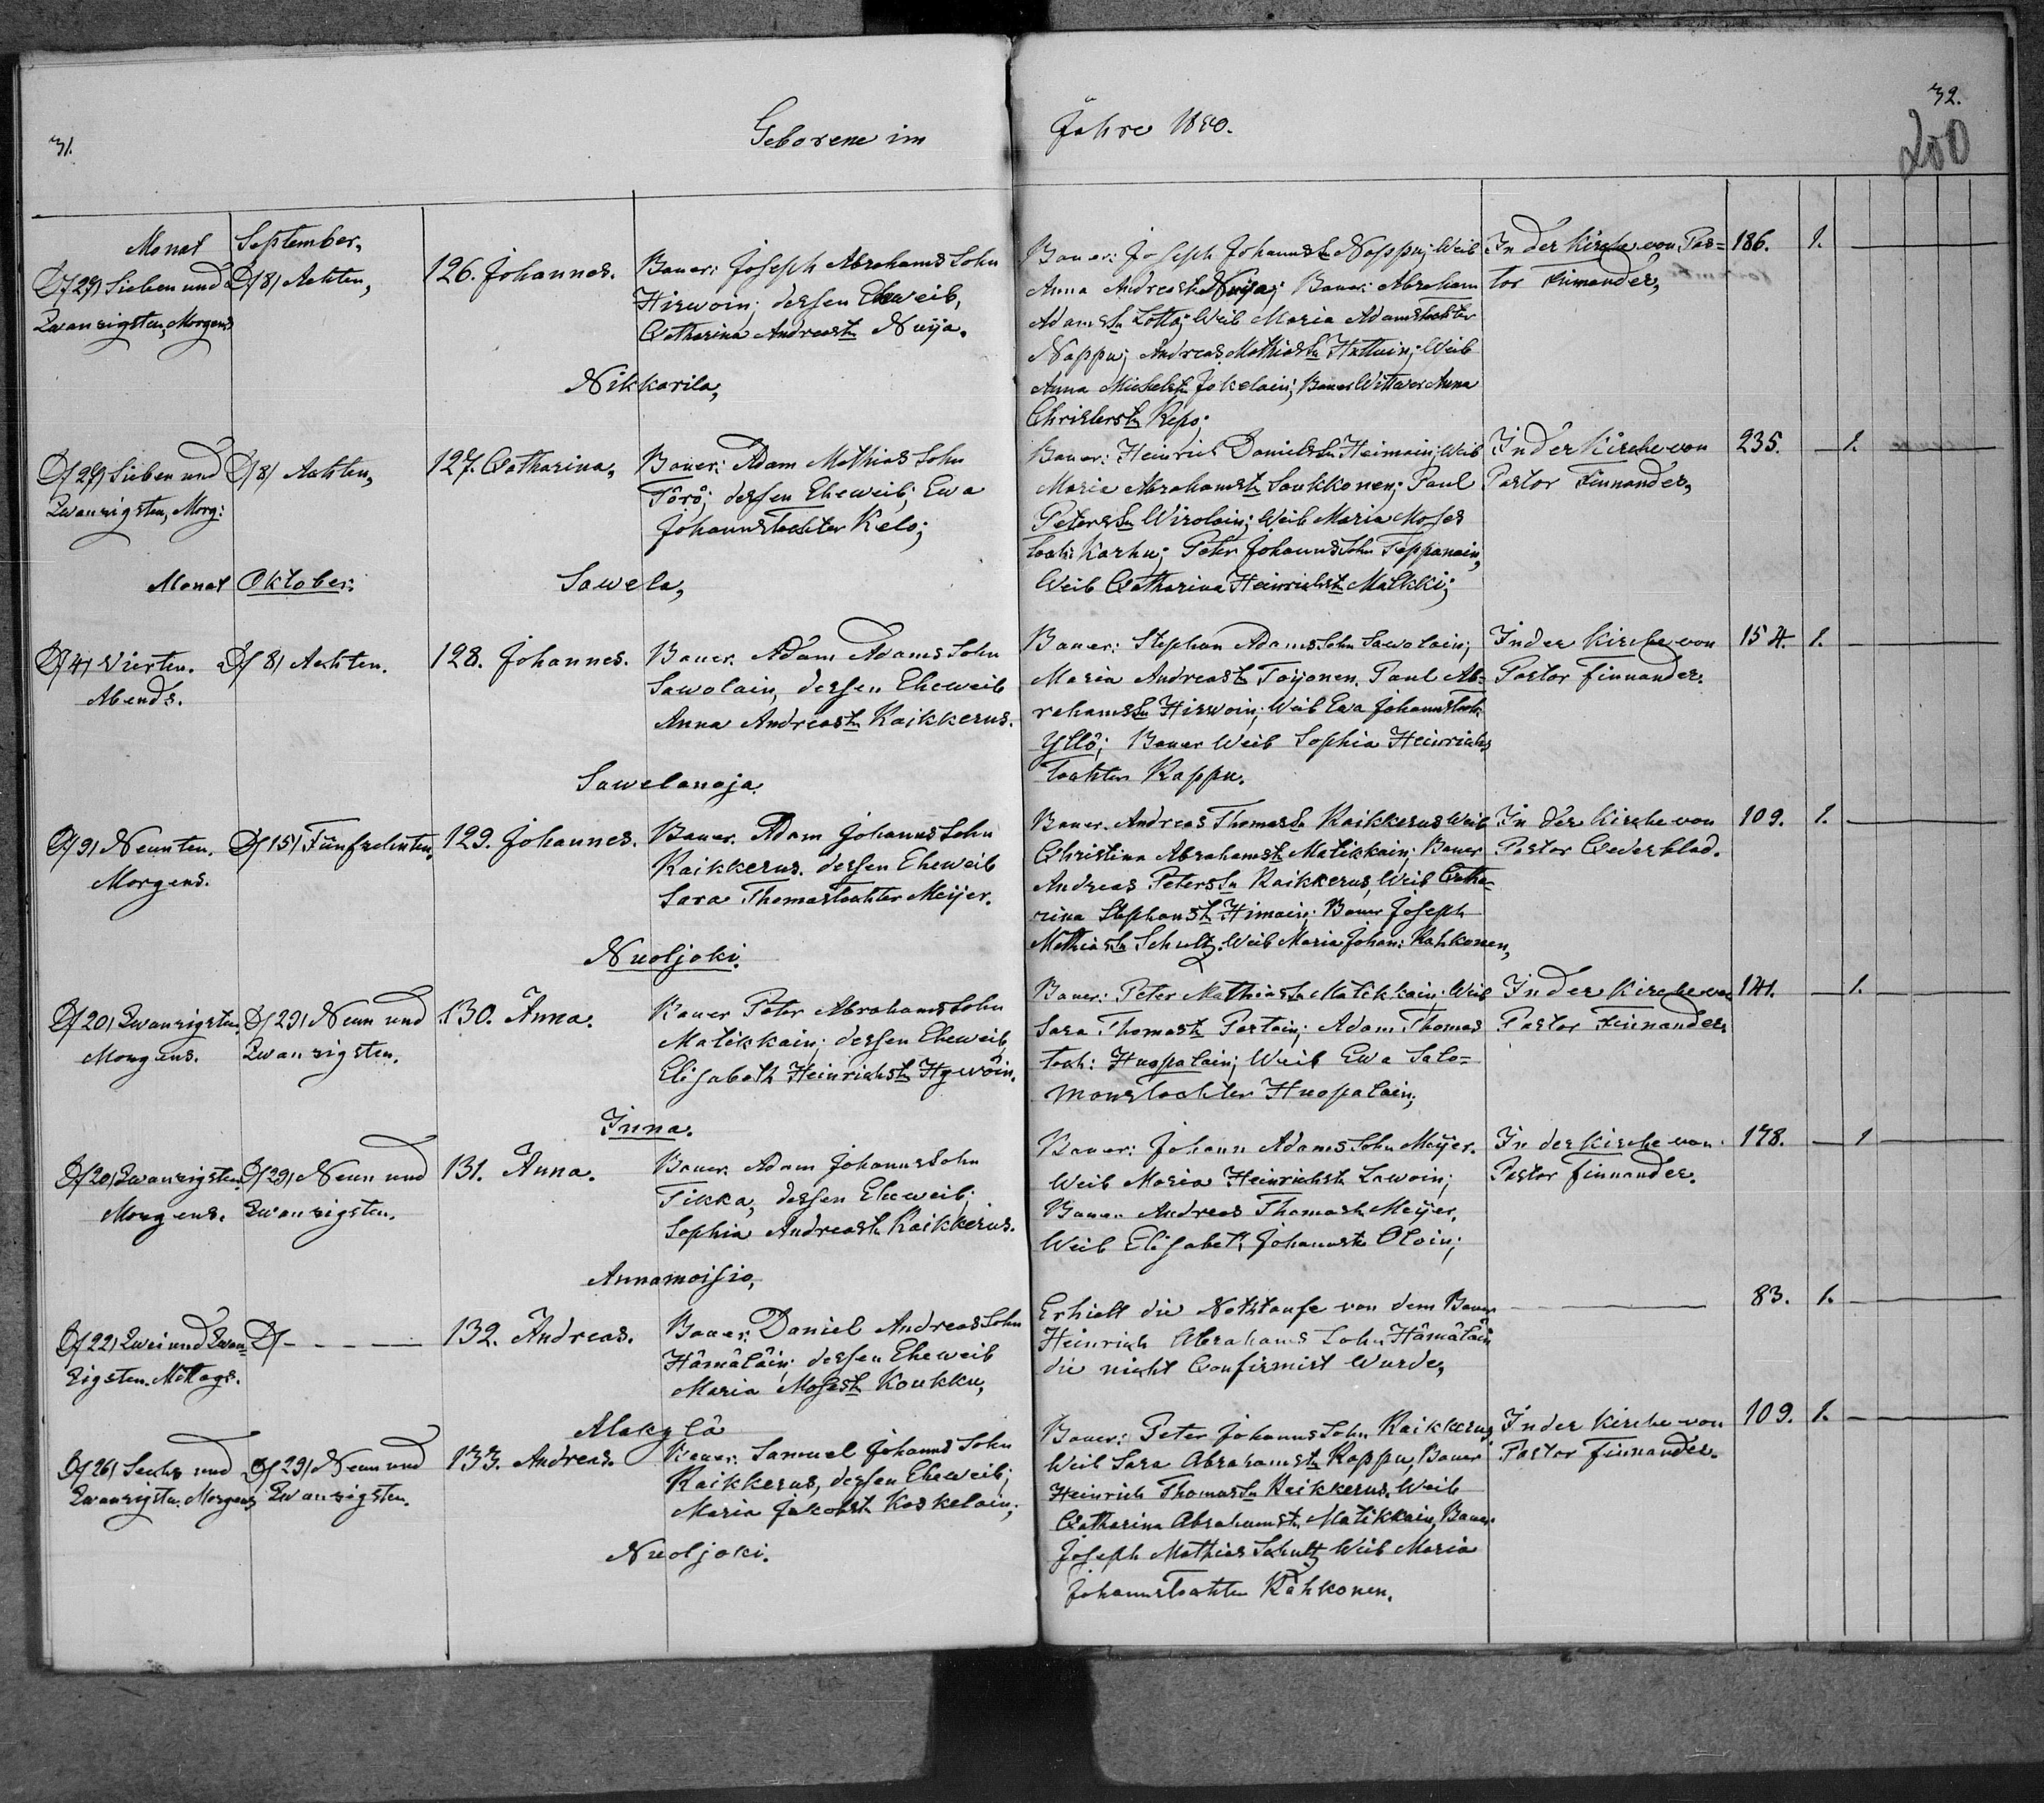 31.
Geborene im
Jahre 1840.
32.
200
Monat September,
D/27/ Sieben und
Zwanzigsten, Morgens
D/8/ Achten,
126. Johannes.
Bauer: Joseph Abrahams Sohn
Hirwoin; dessen Eheweib,
Catharina Andreast. Nuija.
Nikkarila,
Bauer: Joseph Johanns Sn Nappu; Weib
Anna Andreast. Nuija; Bauer: Abraham
Adams Sn Lotta; Weib Maria Adamstochter
Nappu; Andreas Mathias Sn Weib
Anna Michelst. Jokelain; Bauer Wittwer Anna
Repo;
In der Kirche von Pas=
tor Finnander,
186. 1.
D/27/ Sieben und
Zwanzigsten, Morg:
D/8/ Achten,
127. Catharina,
Bauer: Adam Mathias Sohn
Törö; dessen Eheweib; Ewa
Johannstochter Kelo;
Sawela,
Bauer: Heinrich Daniels Sn Heimain; Weib
Maria Abrahamst. Saukkonen; Paul
Peters Sn Wirolain; Weib Maria Moses
Toch: Karhu; Peter Johanns Sohn Teppanain,
Weib Catharina Heinrichst. Malkki;
In der Kirche von
Pastor Finnander,
235. 1.
Monat Oktober:
D/4/ Vierten.
Abends.
D/8/ Achten.
128. Johannes.
Bauer. Adam Adams Sohn
Sawolain, dessen Eheweib
Anna Andreast. Kaikkerus.
Sawelanoja.
Bauer: Stephan Adams Sohn Sawolain;
Maria Andreast. Toijonen. Paul Ab-
rahams Sn Hirwoin; Weib Ewa Johannstoch
Yllö; Bauer Weib Sophia Heinrichs
tochter Kappu.
In der Kirche von
Pastor Finnander.
154. 1.
D/9/ Neunten.
Morgens.
D/15/ Fünfzehnten.
129. Johannes.
Bauer. Adam Johanns Sohn
Kaikkerus. dessen Eheweib
Sara Thomastochter Meijer.
Nuoljoki.
Bauer. Andreas Thomas Sn Kaikkerus Weib
Christina Abrahamst. Matikkain; Bauer
Andreas Peters Sn Kaikkerus, Weib Catha-
rina Stephanst. Himain; Bauer Joseph
Mathias Sn Schultz. Weib Maria Johan: Kahkonen,
In der Kirche von
Pastor Cederblad.
109. 1.
D/20/ Zwanzigsten
Morgens.
D/29/ Neun und
Zwanzigsten.
130. Anna.
Bauer Peter Abrahams Sohn
Matikkain; dessen Eheweib
Elisabeth Heinrichst. Hywöin.
Inna.
Bauer: Peter Mathias Sn Matikkain; Weib
Sara Thomast. Partain; Adam Thomas
toch: Huopalain; Weib Ewa Salo=
monstochter Huopalain;
In der Kirche von
Pastor Finnander.
141. 1.
D/20/ Zwanzigsten.
Morgens.
D/29/ Neun und
Zwanzigsten.
131. Anna.
Bauer. Adam Johanns Sohn
Tikka, dessen Eheweib;
Sophia Andreast. Kaikkerus.
Annamoisio,
Bauer: Johann Adams Sohn Meijer.
Weib Maria Heinrichst. Lawoin;
Bauer Andreas Thomast. Meijer.
Weib Elisabeth Johannst. Oloin;
In der Kirche von
Pastor Finnander.
178. 1
D/22/ Zwei und Zwan-
zigsten. Mittags.
D/ - - - -
132. Andreas.
Bauer: Daniel Andreas Sohn
Hämäläin; dessen Eheweib
Maria Mosest. Koukku,
Alakylä
Erhielt die Nothtaufe von dem Bauer
Heinrich Abrahams Sohn Hämäläin
die nicht Confirmirt wurde,
83. 1.
D/26/ Sechs und
Zwanzigsten. Morgens
D/29/ Neun und
Zwanzigsten.
133. Andreas.
Bauer. Samuel Johanns Sohn
Kaikkerus, dessen Eheweib;
Maria Jakobst. Koskelain;
Nuoljoki.
Bauer: Peter Johanns Sohn Kaikkerus
Weib Sara Abrahamst. Kappu, Bauer
Heinrich Thomas Sn Kaikkerus. Weib
Catharina Abrahamst. Matikkain, Bauer
Joseph Mathias Schultz Weib Maria
Johannstochter Kähkonen.
In der Kirche von
Pastor Finnander.
109. 1.